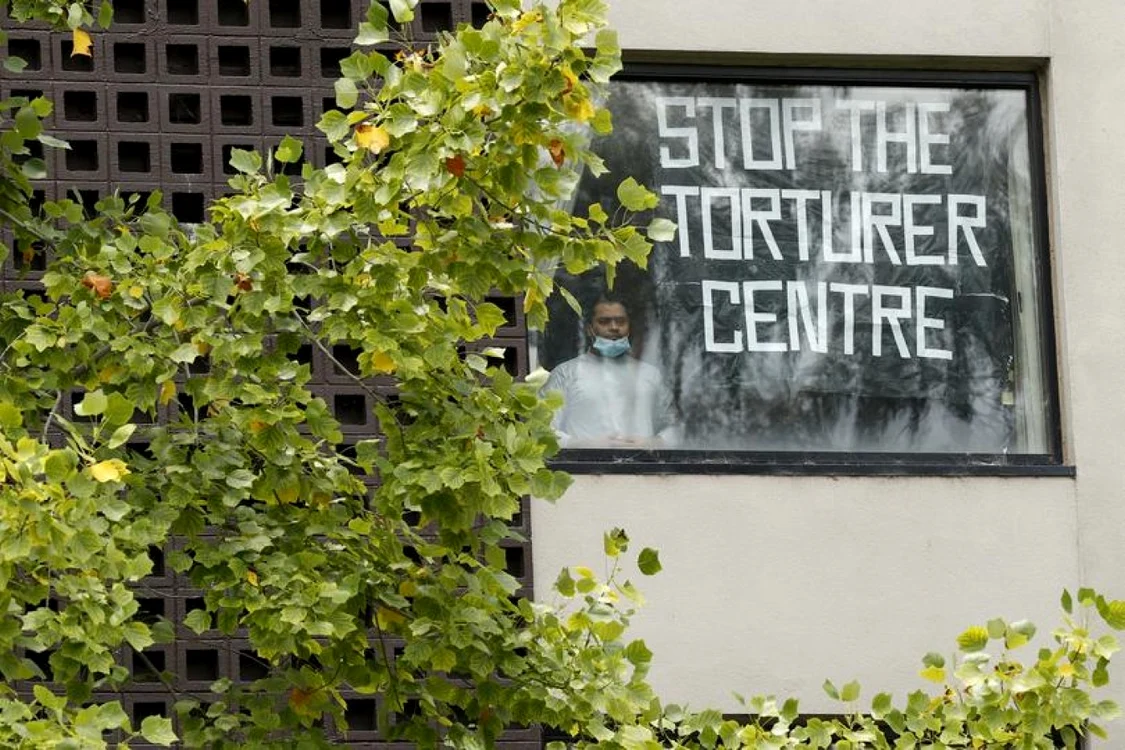 STOP THE
TORTURER
CENTRE